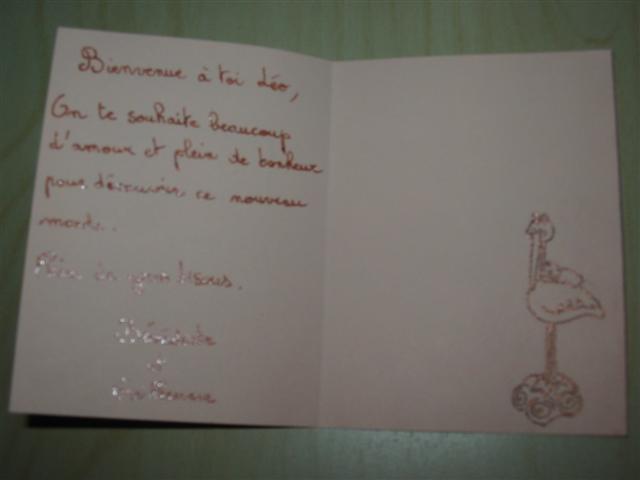 Bienvenue à toi Léo,
On te souhaite beaucoup
d'amour et plein de bonheur
pour découvrir ce nouveau
monde.
Plein de gros bisous.
et